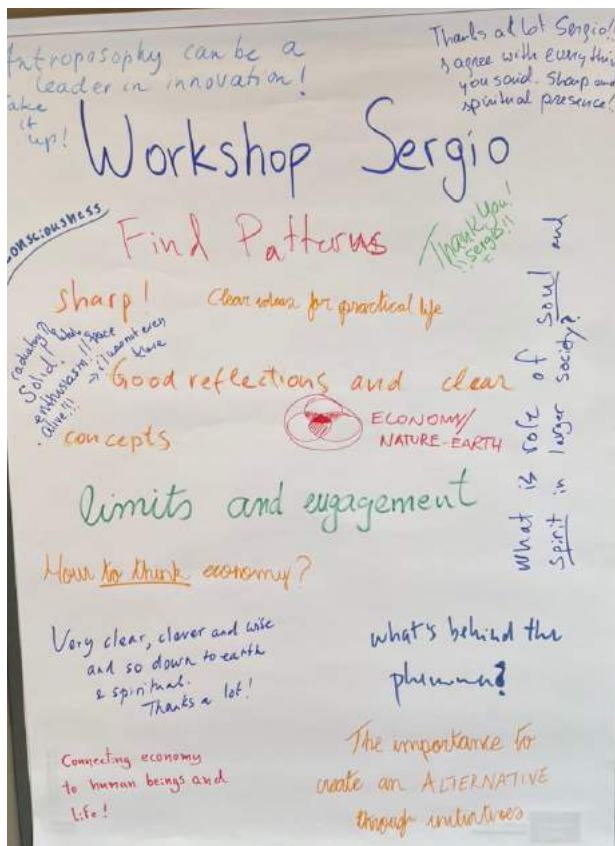 Antroposophy can be a
leader in innovation!
Take
it
up!
Thanks a lot Sergio!!
I agree with everythin
you said. Sharp and
spiritual presence!
Workshop Sergio
consciousness
Find Patterns
Thank you!
Sergio!!
sharp!
Clear ideas for practical life
radiating
Solid!
whole space
enthusiasm!!
alive!!!
i was not even
there
Good reflections and clear
concepts
ECONOMY/
NATURE-EARTH
What is role of soul and
spirit in larger society?
limits and engagement
How to think economy?
Very clear, clever and wise
and so down to earth
& spiritual.
Thanks a lot!
what's behind the
Connecting economy
to human beings and
life!
The importance to
create an ALTERNATIVE
through initiatives